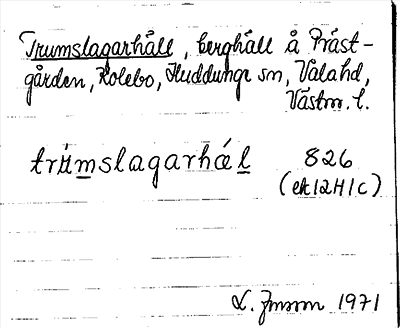 Trumslagarhäll, berghäll å Präst-
gården, Kolebo, Huddunge sn, Valahd,
Västm. l.
trùmslagarhǽl 826
(ek 12H1c)
L. Jonsson 1971